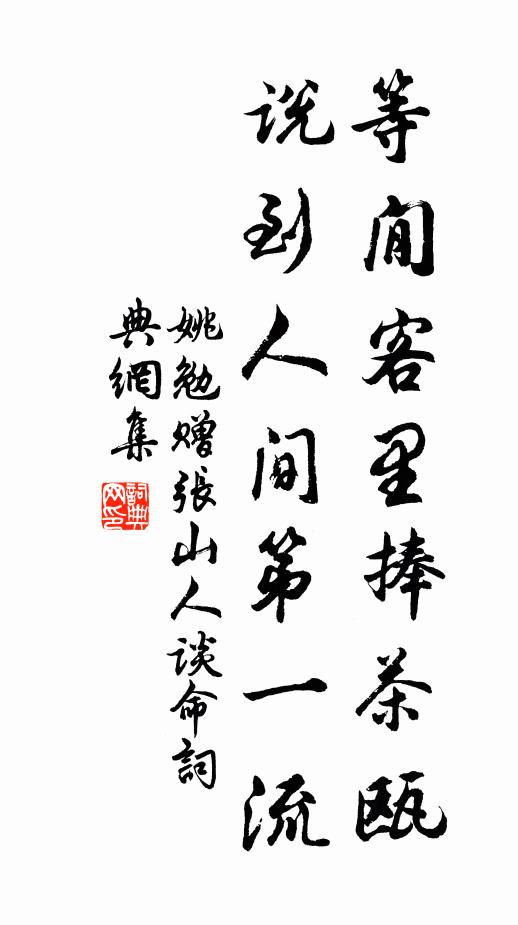 等闲客里捧茶瓯
说到人间第一流
姚勉赠張山人谈命詞
典網集
詞典网印